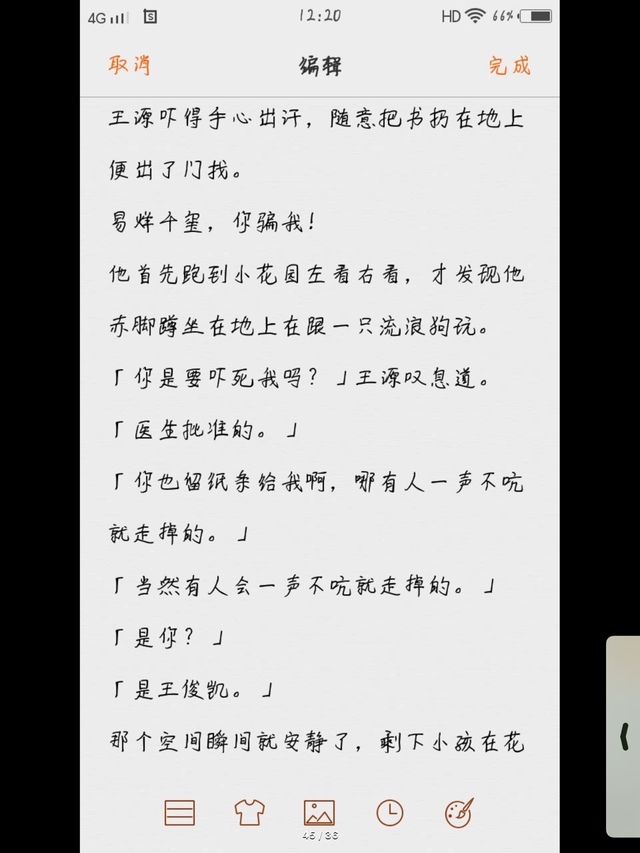 4G 12:20 HD 66%
取消 编辑 完成
王源吓得手心出汗，随意把书扔在地上
便出了门找。
易烊千玺，你骗我！
他首先跑到小花园左看右看，才发现他
赤脚蹲坐在地上在跟一只流浪狗玩。
「你是要吓死我吗？」王源叹息道。
「医生批准的。」
「你也留纸条给我啊，哪有人一声不吭
就走掉的。」
「当然有人会一声不吭就走掉的。」
「是你？」
「是王俊凯。」
那个空间瞬间就安静了，剩下小孩在花
45/36